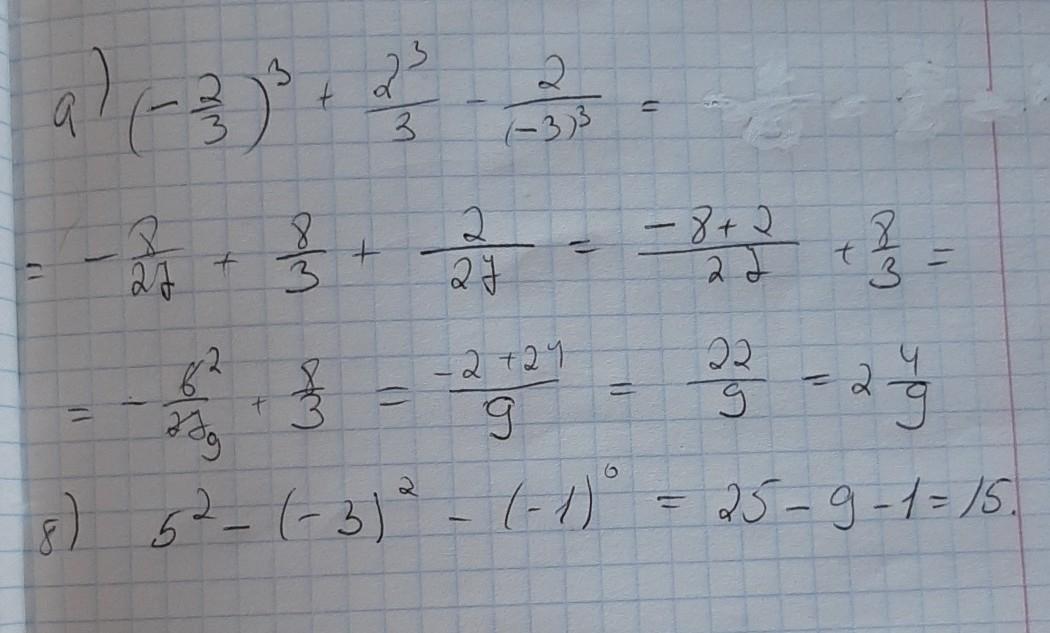 а) (-2/3)^3 + 2^3/3 - 2/(-3)^3 =
= - 8/27 + 8/3 + 2/27 = (-8+2)/27 + 8/3 =
= - 6^2/27_9 + 8/3 = (-2+24)/9 = 22/9 = 2 4/9
в) 5^2 - (-3)^2 - (-1)^6 = 25 - 9 - 1 = 15.